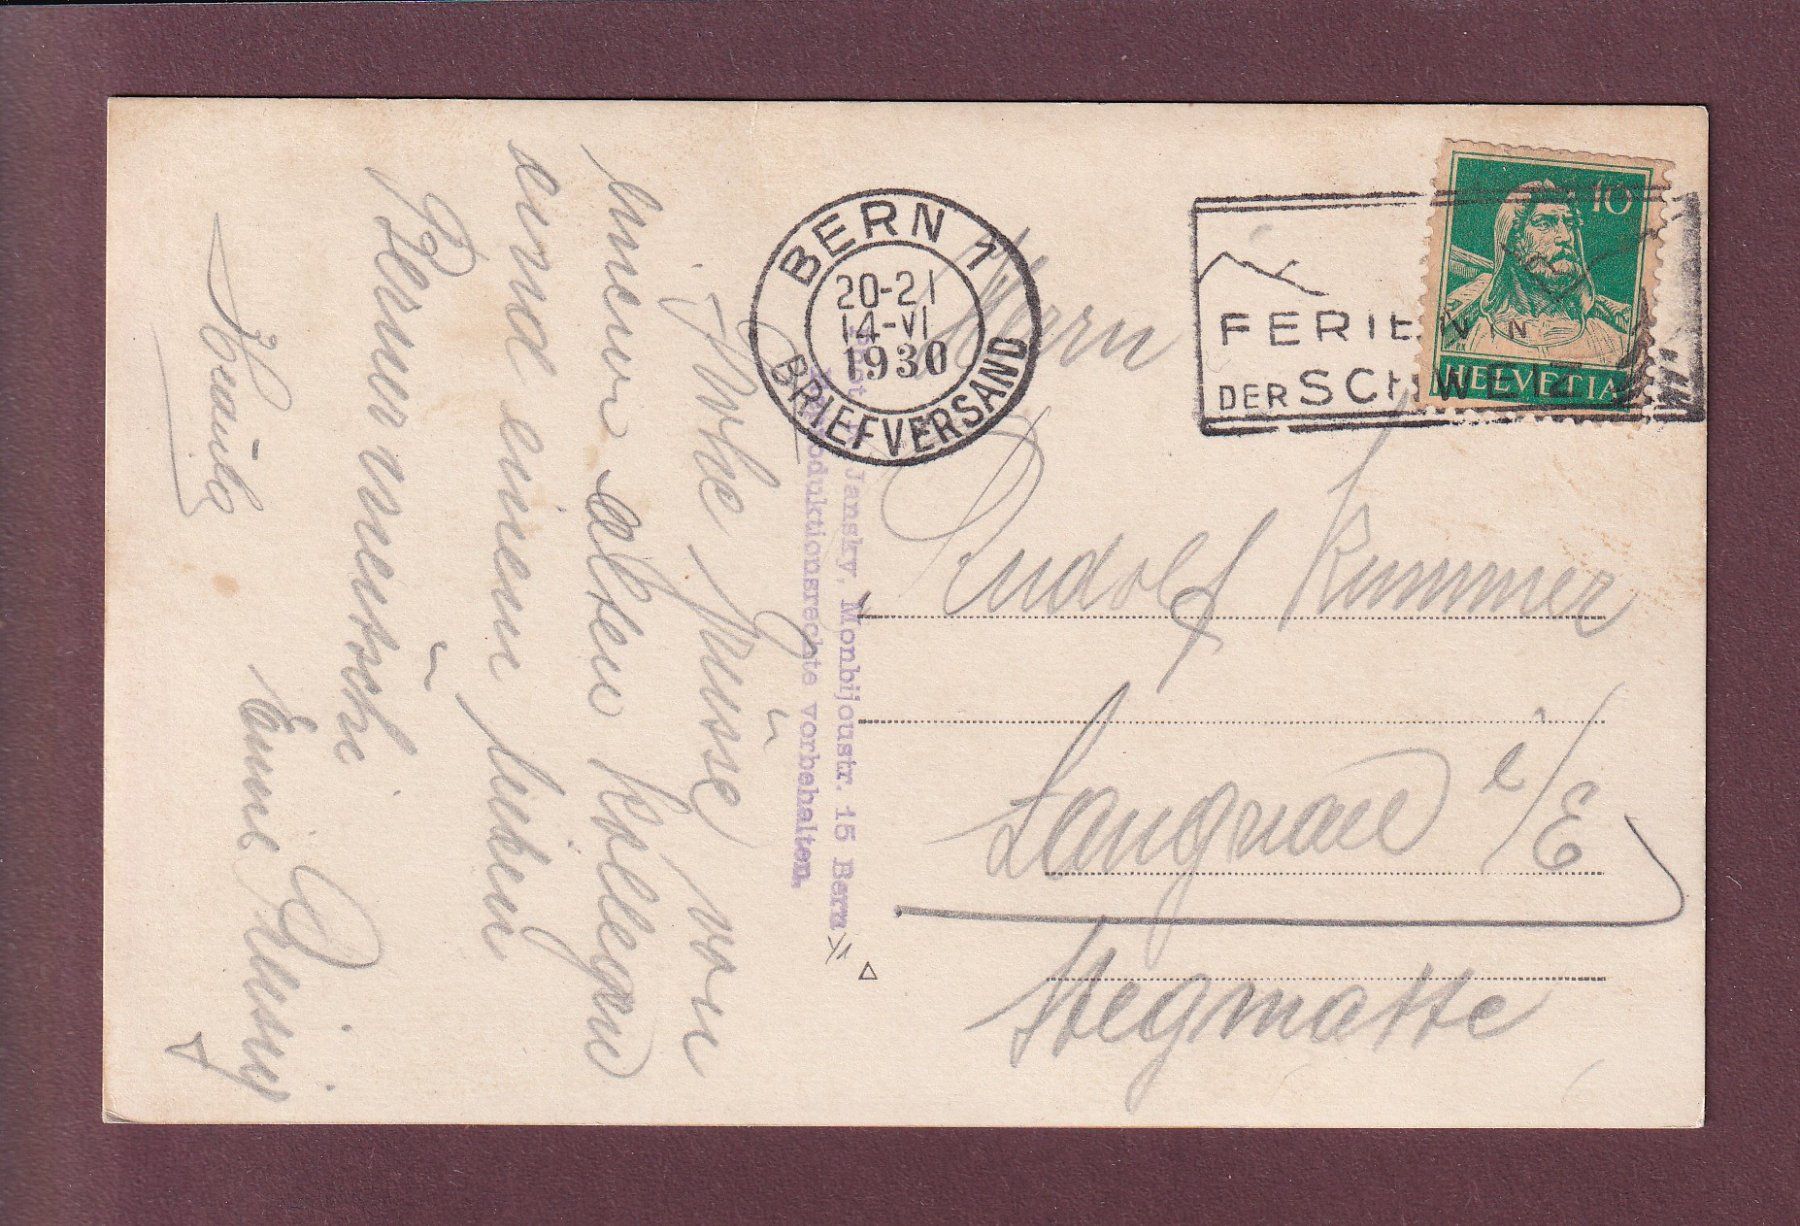 BERN 1
20-21
14-VI
1930
BRIEFVERSAND
FERIEN IN
DER SCHWEIZ
10
HELVETIA
Herrn
Rudolf Kummer
Langnau i/E
Stegmatte
Jansky, Monbijoustr. 15 Bern
oduktionsrechte vorbehalten.
Frohe Grüsse von
einem alten Kollegen
und einem lieben
Bernermeitschi